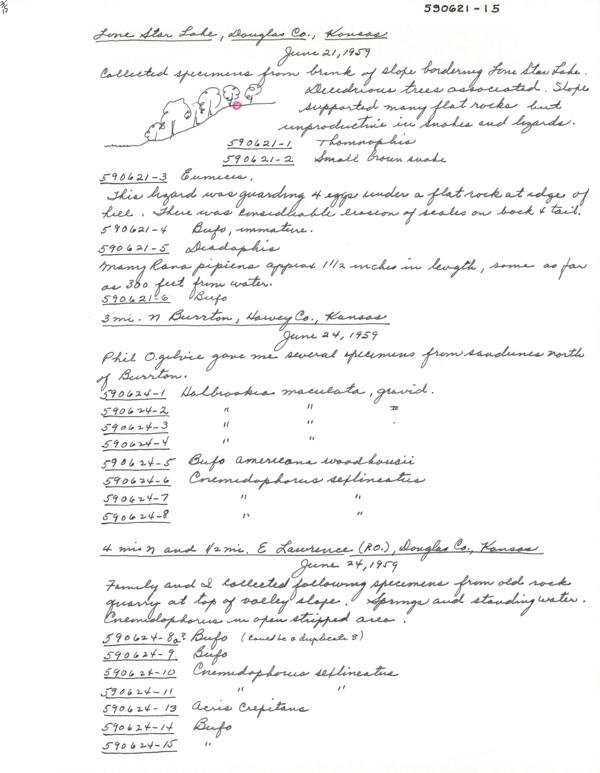 590621-15
Lone Star Lake, Douglas Co., Kansas
June 21, 1959
Collected specimens from brink of slope bordering Lone Star Lake.
Decidrious trees associated. Slope
supported many flat rocks but
unproductive in snakes and lizards.
590621-1 Thamnophis
590621-2 Small brown snake
590621-3 Eumeces.
This lizard was guarding 4 eggs under a flat rock at edge of
hill. There was considerable erosion of scales on back & tail.
590621-4 Bufo, immature.
590621-5 Diadophis
Many Rana pipiens approx 1 1/2 inches in length, some as far
as 300 feet from water.
590621-6 Bufo
3 mi. N Burrton, Harvey Co., Kansas
June 24, 1959
Phil Ogilvie gave me several specimens from sandunes north
of Burrton.
590624-1 Holbrookia maculata, gravid.
590624-2 " " "
590624-3 " "
590624-4 " "
590624-5 Bufo americana woodhousii
590624-6 Cnemidophorus sexlineatus
590624-7 " "
590624-8 " "
4 mi N and 1/2 mi. E Lawrence (P.O.), Douglas Co., Kansas
June 24, 1959
Family and I collected following specimens from old rock
quarry at top of valley slope. Springs and standing water.
Cnemidophorus in open stripped area.
590624-8a? Bufo (could be a duplicate 8)
590624-9 Bufo
590624-10 Cnemidophorus sexlineatus
590624-11 " "
590624-13 Acris Crepitans
590624-14 Bufo
590624-15 "